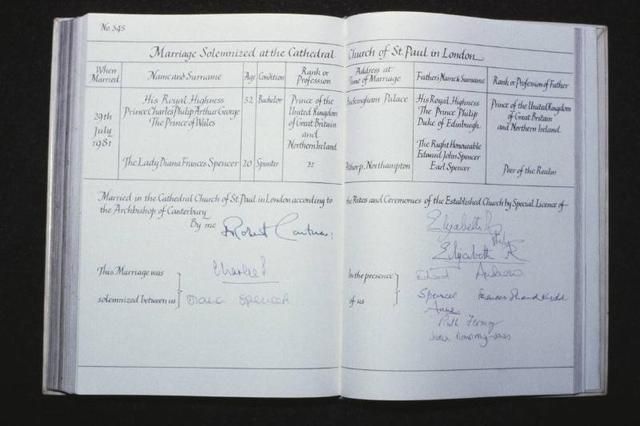 No. 345
Marriage Solemnized at the Cathedral Church of St. Paul in London
When Married
Name and Surname
Age
Condition
Rank or Profession
Address at Time of Marriage
Fathers Name & Surname
Rank or Profession of Father
29th July 1981
His Royal Highness
Prince Charles Philip Arthur George
The Prince of Wales
32
Bachelor
Prince of the
United Kingdom
of Great Britain
and
Northern Ireland
Buckingham Palace
His Royal Highness
The Prince Philip
Duke of Edinburgh
Prince of the United Kingdom
of Great Britain
and Northern Ireland
The Lady Diana Frances Spencer
20
Spinster
Althorp, Northampton
The Right Honourable
Edward John Spencer
Earl Spencer
Peer of the Realm
Married in the Cathedral Church of St. Paul in London according to the Rites and Ceremonies of the Established Church by Special Licence of
the Archbishop of Canterbury
By me Robert Cantuar:
This Marriage was
solemnized between us
Charles P
Diana Spencer
In the presence
of us
Elizabeth R
Philip
Elizabeth R
Andrew
Spencer
Frances Shand Kydd
Anne
Ruth Fermoy